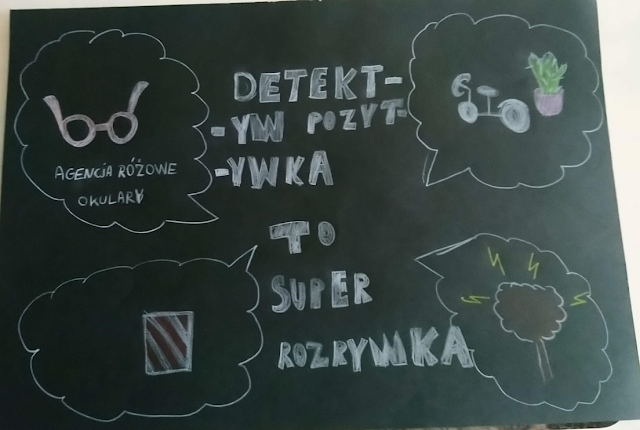 DETEKT-
-YW POZYT-
-YWKA
TO
SUPER
ROZRYWKA
AGENCJA RÓŻOWE
OKULARY